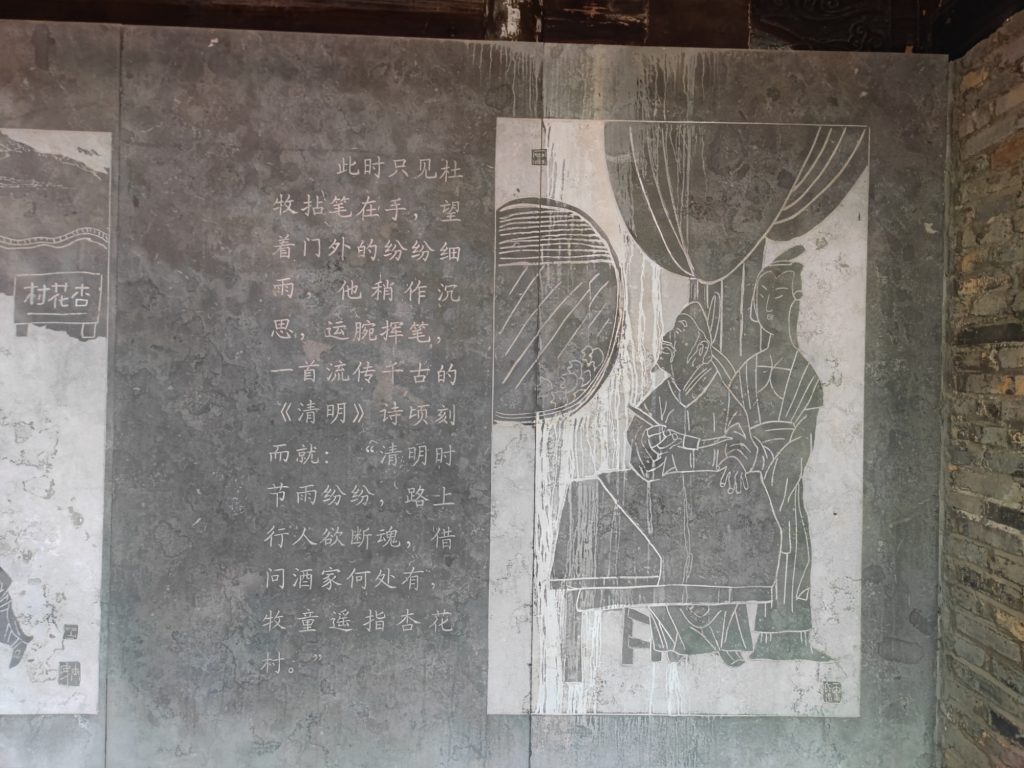 杏花村
此时只见杜
牧拈笔在手，望
着门外的纷纷细
雨，他稍作沉
思，运腕挥笔，
一首流传千古的
《清明》诗顷刻
而就：“清明时
节雨纷纷，路上
行人欲断魂，借
问酒家何处有，
牧童遥指杏花
村。”